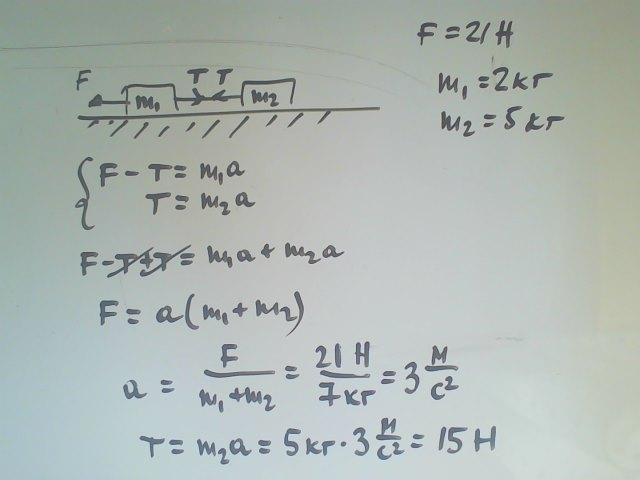 F = 21 Н
m₁ = 2 кг
m₂ = 5 кг
F m₁ T T m₂
F - T = m₁a
T = m₂a
F - T + T = m₁a + m₂a
F = a(m₁ + m₂)
a = F / (m₁ + m₂) = 21 Н / 7 кг = 3 м/с²
T = m₂a = 5 кг · 3 м/с² = 15 Н